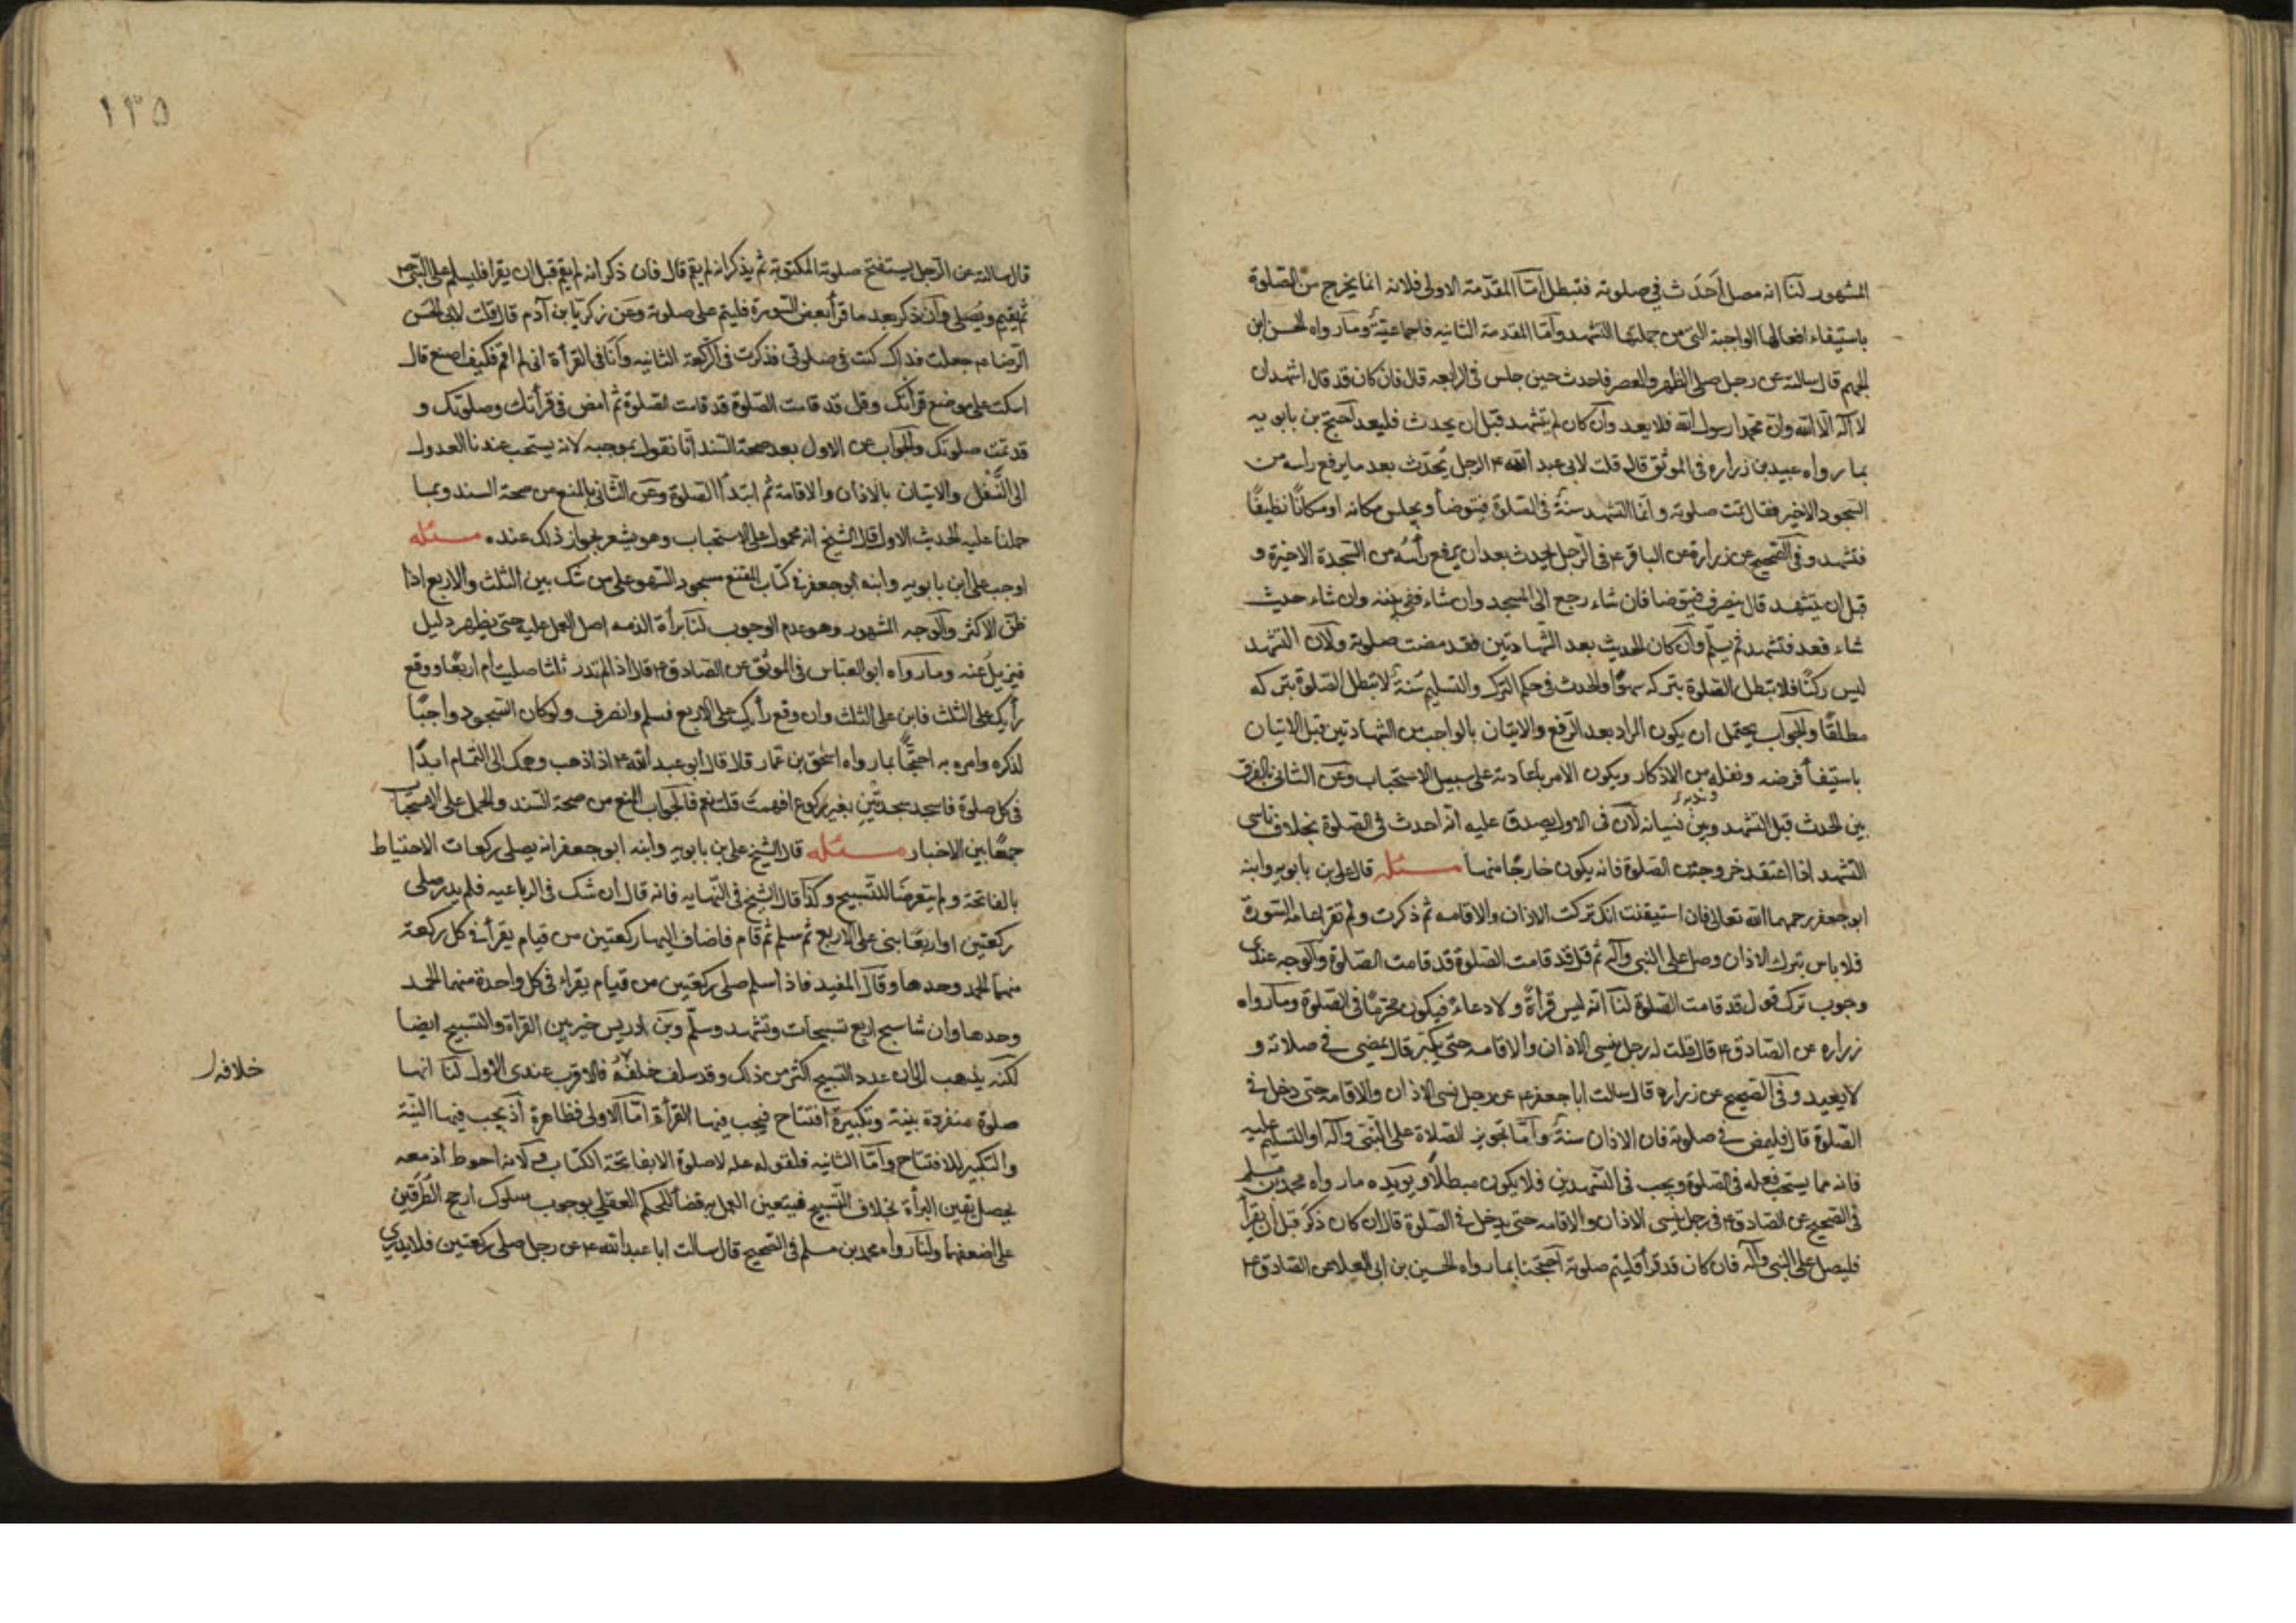 المشهور لنا انه مصل أَحدَث في صلوته فتبطل امّا المقدّمة الاولى فلانه انما يخرج من الصّلوة
باستيفاء افعالها الواجبة التي من جملتها التشهد وامّا المقدمة الثانيه فاجماعيّة وما رواه الحسن ابن
الجهم قال سالته عن رجل صلى الظهر والعصر فاحدث حين جلس في الرابعه قال فان كان قد قال اشهد ان
لا اله الّا الله وان محمدا رسول الله فلا يعد وان كان لم يتشهد قبل ان يحدث فليعد احتج بن بابويه
بما رواه عبيد بن زراره في الموثق قال قلت لابي عبد الله ع الرجل يُحدّث بعد ما يرفع راسه من
السجود الاخير فقال تمت صلوته وانما التشهد سنة في الصلوة فيتوضأ ويجلس مكانه او مكانًا نظيفًا
فتشهد وفي الصحيح عن زرارة عن الباقر ع في الرجل يحدث بعد ان يرفع رأسه من السجدة الاخيرة و
قبل ان يتشهد قال ينصرف فيتوضا فان شاء رجع الى المسجد وان شاء ففي بيته وان شاء حديث
شاء قعد فتشهد ثم يسلّم وان كان الحديث بعد الشهادتين فقد مضت صلوته ولان التشهد
ليس ركنًا فلا تبطل الصلوة بتركه سهوًا والحدث في حكم الترك والتسليم سنة لا تبطل الصلوة بتركه
مطلقًا والجواب يحتمل ان يكون المراد بعد الرّفع والاتيان بالواجب من الشهادتين قبل الاتيان
باستيفأ فرضه ونفله من الاذكار ويكون الامر باعادته على سبيل الاستحباب وعن الثاني بالفرق
بين الحدث قبل التشهد وبين نسيانه لان في الاول يصدق عليه انه احدث في الصلوة بخلاف ناسي
التشهد اذا اعتقد خروجه من الصلوة فانه يكون خارجًا منها مسئله قال علي بن بابويه وابنه
ابو جعفر رحمهما الله تعالى فان استيقنت انك تركت الاذان والاقامه ثم ذكرت ولم تقرا عامه السّورة
فلا باس بترك الاذان وصل على النبي وآله ثم قل قد قامت الصلوة قد قامت الصّلوة والوجه عندي
وجوب ترك قول قد قامت الصّلوة لنا انّه ليس قرأةً ولا دعاءً فيكون محرمًا في الصلوة وما رواه
زراره عن الصّادق ع قال قلت له رجل ينسى الاذان والاقامه حتى يكبّر قال يمضي في صلاته و
لا يعيد وفي الصّحيح عن زراره قال سالت ابا جعفر ع عن رجل نسى الاذان والاقامة حتى دخل في
الصّلوة قال فليمض في صلوته فان الاذان سنة وامّا تجويز الصلاة على النّبي وآله او التسليم عليه
فانه مما يستحب فعله في الصلوة ويجب في التشهدين فلا يكون مبطلًا ويؤيده ما رواه محمد بن مسلم
في الصّحيح عن الصادق ع في رجل ينسى الاذان والاقامه حتى يدخل في الصّلوة قال ان كان ذكر قبل ان يقرأ
فليصل على النبي وآله فان كان قد قرأ فليتم صلوته احتجّا بما رواه الحسين بن ابي العلا عن الصّادق ع
١٣٥
قال سالته عن الرّجل يستفتح صلوته المكتوبة ثم يذكر انه لم يقم قال فان ذكر انه لم يقم قبل ان يقرا فليسلم على النّبي ص
ثم يقيم ويُصلّي وان ذكر بعد ما قرأ بعض السّورة فليتم على صلوته وعن زكريّا بن آدم قال قلت لابي الحسن
الرّضا ع جعلت فداك كنت في صلوتي فذكرت في الرّكعة الثانيه وانا في القرأة اني لم اقم فكيف اصنع قال
اسكت على موضع قرأتك وقل قد قامت الصّلوة قد قامت الصّلوة ثم امض في قرأتك وصلوتك و
قد تمّت صلوتك والجواب عن الاول بعد صحة السّند انّا نقول بموجبه لانه يستحب عندنا العدول
الى النّفل والاتيان بالاذان والاقامة ثم ابتدأ الصّلوة وعن الثّاني بالمنع من صحة السند وبما
حملنا عليه الحديث الاول قال الشّيخ انه محمول على الاستحباب وهو يشعر بجواز ذلك عنده مسئله
اوجب علي ابن بابويه وابنه ابو جعفر في كتاب المقنع سجود السّهو على من شك بين الثلث والاربع اذا
ظنّ الاكثر والوجه المشهور وهو عدم الوجوب لنا برأة الذمه اصل العمل عليه حتى يظهر دليل
فيزيل عنه وما رواه ابو العبّاس في الموثق عن الصّادق ع قال اذا لم تدر ثلثا صليت ام اربعًا ووقع
رأيك على الثلث فابن على الثلث وان وقع رأيك على الاربع فسلم وانصرف ولو كان السّجود واجبًا
لذكره وامره به احتجّا بما رواه اسحق بن عمار قال قال ابو عبد الله ع اذا ذهب وهمك الى التمام ابدًا
في كل صلوة فاسجد سجدتين بغير ركوع افهمت قلت نعم فالجواب المنع من صحة السّند والحمل على الاستحباب
جمعًا بين الاخبار مسئله قال الشيخ علي بن بابويه وابنه ابو جعفر انه يصلي ركعات الاحتياط
بالفاتحة ولم يتعرضا للتسبيح وكذا قال الشيخ في النّهايه فانه قال ان شك في الرباعيه فلم يدر صلى
ركعتين او اربعًا بنى على الاربع ثم سلم ثم قام فاضاف اليها ركعتين من قيام يقرأ في كل ركعة
منهما الحمد وحدها وقال المفيد فاذا سلم صلى ركعتين من قيام يقراء في كل واحدة منهما الحمد
وحدها وان شا سبح اربع تسبيحات وتشهد وسلّم وبن ادريس خير بين القراة والتسبيح ايضا
لكنّه يذهب الى ان عدد التسبيح اكثر من ذلك وقد سلف خلفهُ فالاقرب عندي الاول لنا انها
خلافه
صلوة منفردة بنية وتكبيرة افتتاح فيجب فيها القرأة امّا الاولى فظاهرة اذ يجب فيها النيّة
والتكبير للافتتاح وامّا الثانيه فلقوله عله لا صلوة الا بفاتحة الكتاب ولانه احوط اذ معه
يحصل يقين البرأة بخلاف التّسبيح فيتعين العمل به قضأ للحكم العقلي بوجوب سلوك ارجح الطّرقين
على اضعفهما ولنا رواه محمد بن مسلم في الصّحيح قال سالت ابا عبد الله ع عن رجل صلى ركعتين فلا يدري